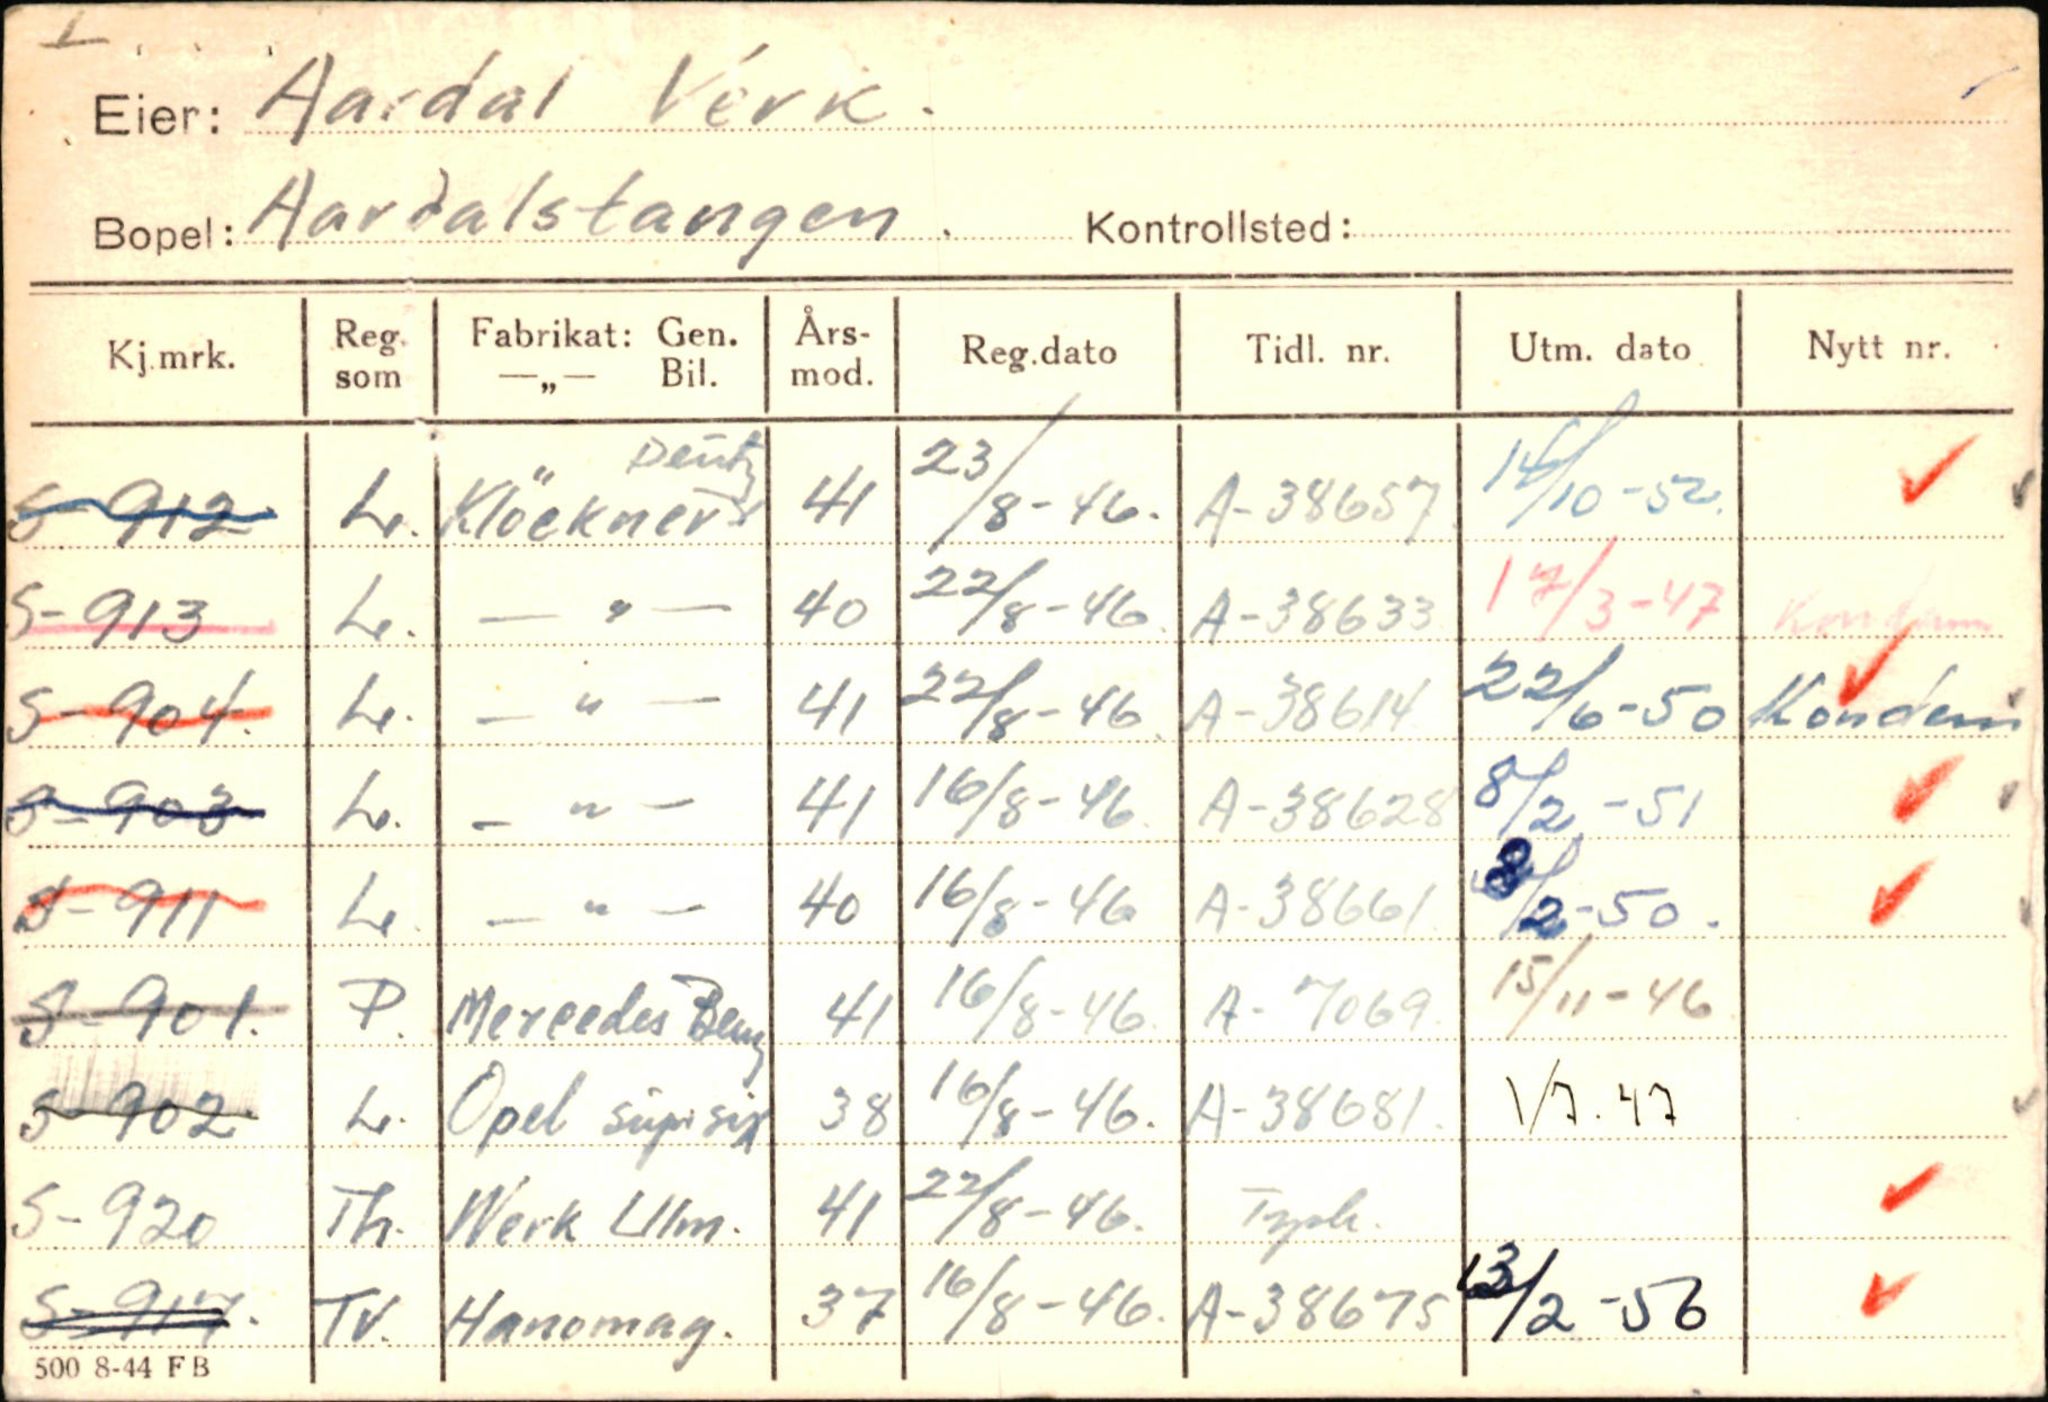 I
Eier: Aardal Verk.
Bopel: Aardalstangen. Kontrollsted:
Kj.mrk. Reg. som Fabrikat: Gen. —„— Bil. Års- mod. Reg.dato Tidl. nr. Utm. dato Nytt nr.
S-912 L. Klöckner Deutz 41 23/8-46. A-38657. 14/10-52.
S-913 L. —"— 40 22/8-46. A-38633 17/3-47 Kondem
S-904. L. —"— 41 22/8-46. A-38614 22/6-50 Kondem
S-903 L. —"— 41 16/8-46. A-38628 8/2-51
S-911 L. —"— 40 16/8-46 A-38661. 8/2-50.
S-901. P. Mercedes Benz 41 16/8-46. A-7069. 15/11-46
S-902 L. Opel sup. six 38 16/8-46. A-38681. 1/7.47
S-920 Th. Werk Ulm. 41 22/8-46.
S-917. Tv. Hanomag. 37 16/8-46. A-38675 13/2-56
500 8-44 F B